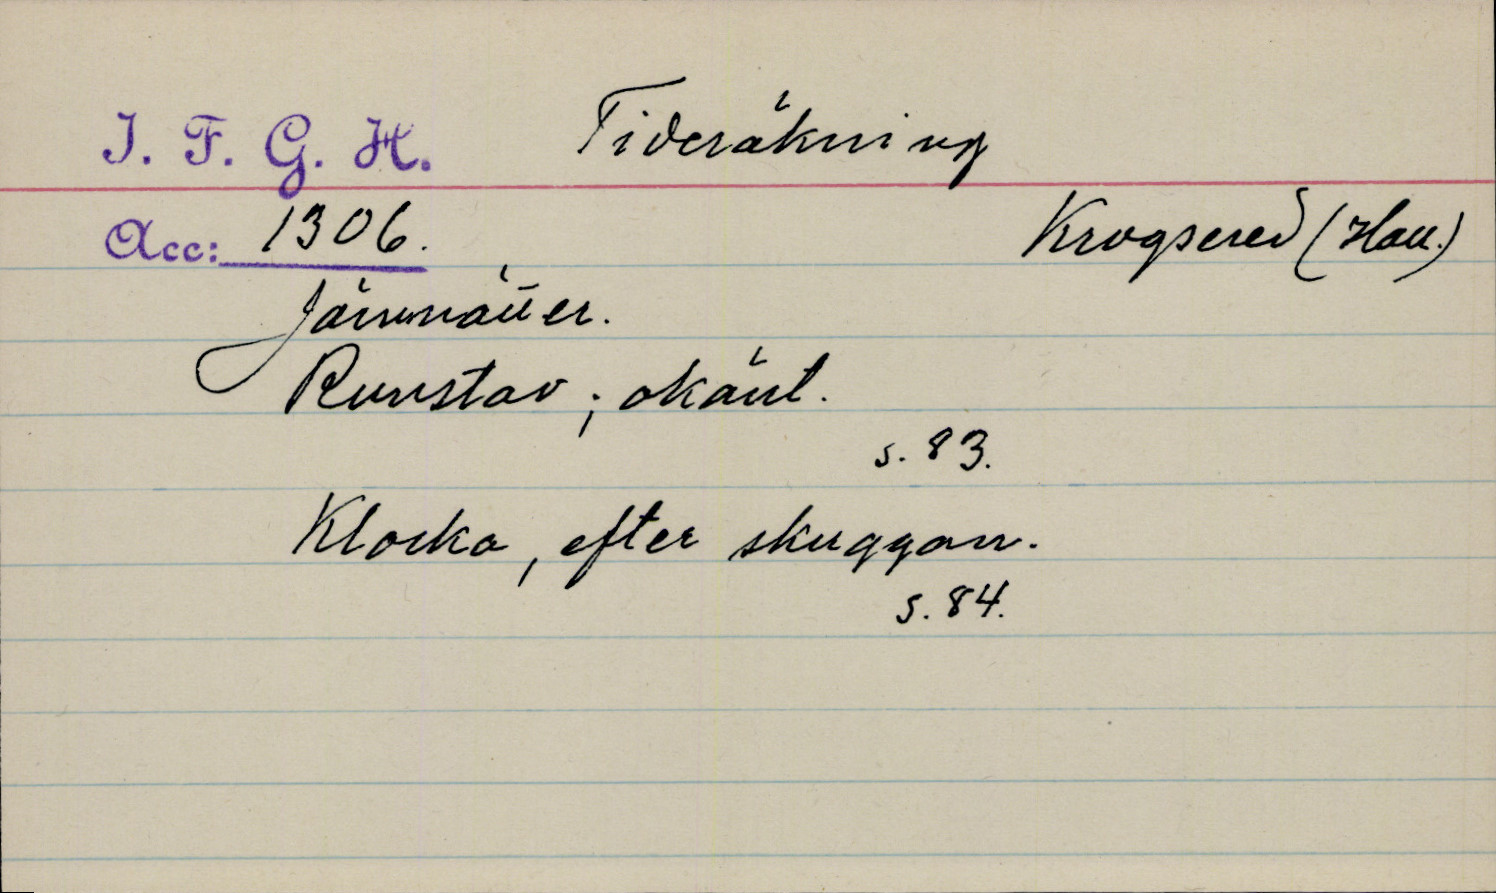 I. F. G. H. Tideräkning
Acc: 1306. Krogsered (Hall.)
Järnnätter.
Runstav; okänt.
s. 83.
Klocka, efter skuggan.
s. 84.